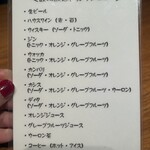 ・生ビール
・ハウスワイン (赤・白)
・ウィスキー (ソーダ・トニック)
・ジン
(トニック・オレンジ・グレープフルーツ)
・ウォッカ
(トニック・オレンジ・グレープフルーツ)
・カンパリ
(ソーダ・オレンジ・グレープフルーツ)
・カシス
(ソーダ・オレンジ・グレープフルーツ・ウーロン)
・ディタ
(ソーダ・オレンジ・グレープフルーツ)
・オレンジジュース
・グレープフルーツジュース
・ウーロン茶
・コーヒー (ホット・アイス)